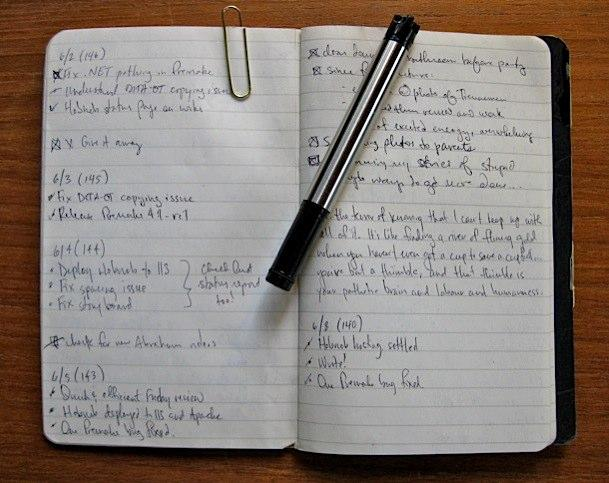 6/2 (146)
Fix .NET pathing in Premake
Understand DITA-OT copying issue
Hobnob status page on wiki
X Give it away
6/3 (145)
Fix DITA-OT copying issue
Release Premake 4.1-rc1
6/4 (144)
Deploy Hobnob to IIS
Fix spacing issue
Fix storyboard
check and
status report
too!
check for new Abraham videos
6/5 (143)
Quick & efficient Friday review
Hobnob deployed to IIS and Apache
One Premake bug fixed.
clean downstairs bathroom before party
since
photo of
review and work
of excited energy, overwhelming
photos to parents
my series of stupid
ways to get more done...
the terror of knowing that I can't keep up with
all of it. It's like finding a river of flowing gold
when you haven't even got a cup to save a cupful...
you've but a thimble, and that thimble is
your pathetic brain and labour and humanness.
6/8 (140)
Hobnob hosting settled
Write!
One Premake bug fixed